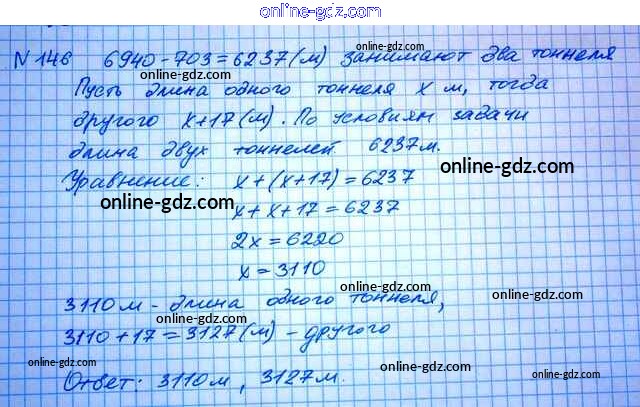 online-gdz.com
N 146 6940-703=6237(м) занимают два тоннеля
Пусть длина одного тоннеля x м, тогда
другого x+17(м). По условиям задачи
длина двух тоннелей 6237м.
online-gdz.com
Уравнение: x+(x+17)=6237
online-gdz.com
x+x+17=6237
2x=6220
x=3110
online-gdz.com
3110м-длина одного тоннеля,
online-gdz.com
3110+17=3127(м)-другого
online-gdz.com
online-gdz.com
online-gdz.com
Ответ: 3110м, 3127м.
online-gdz.com
online-gdz.com